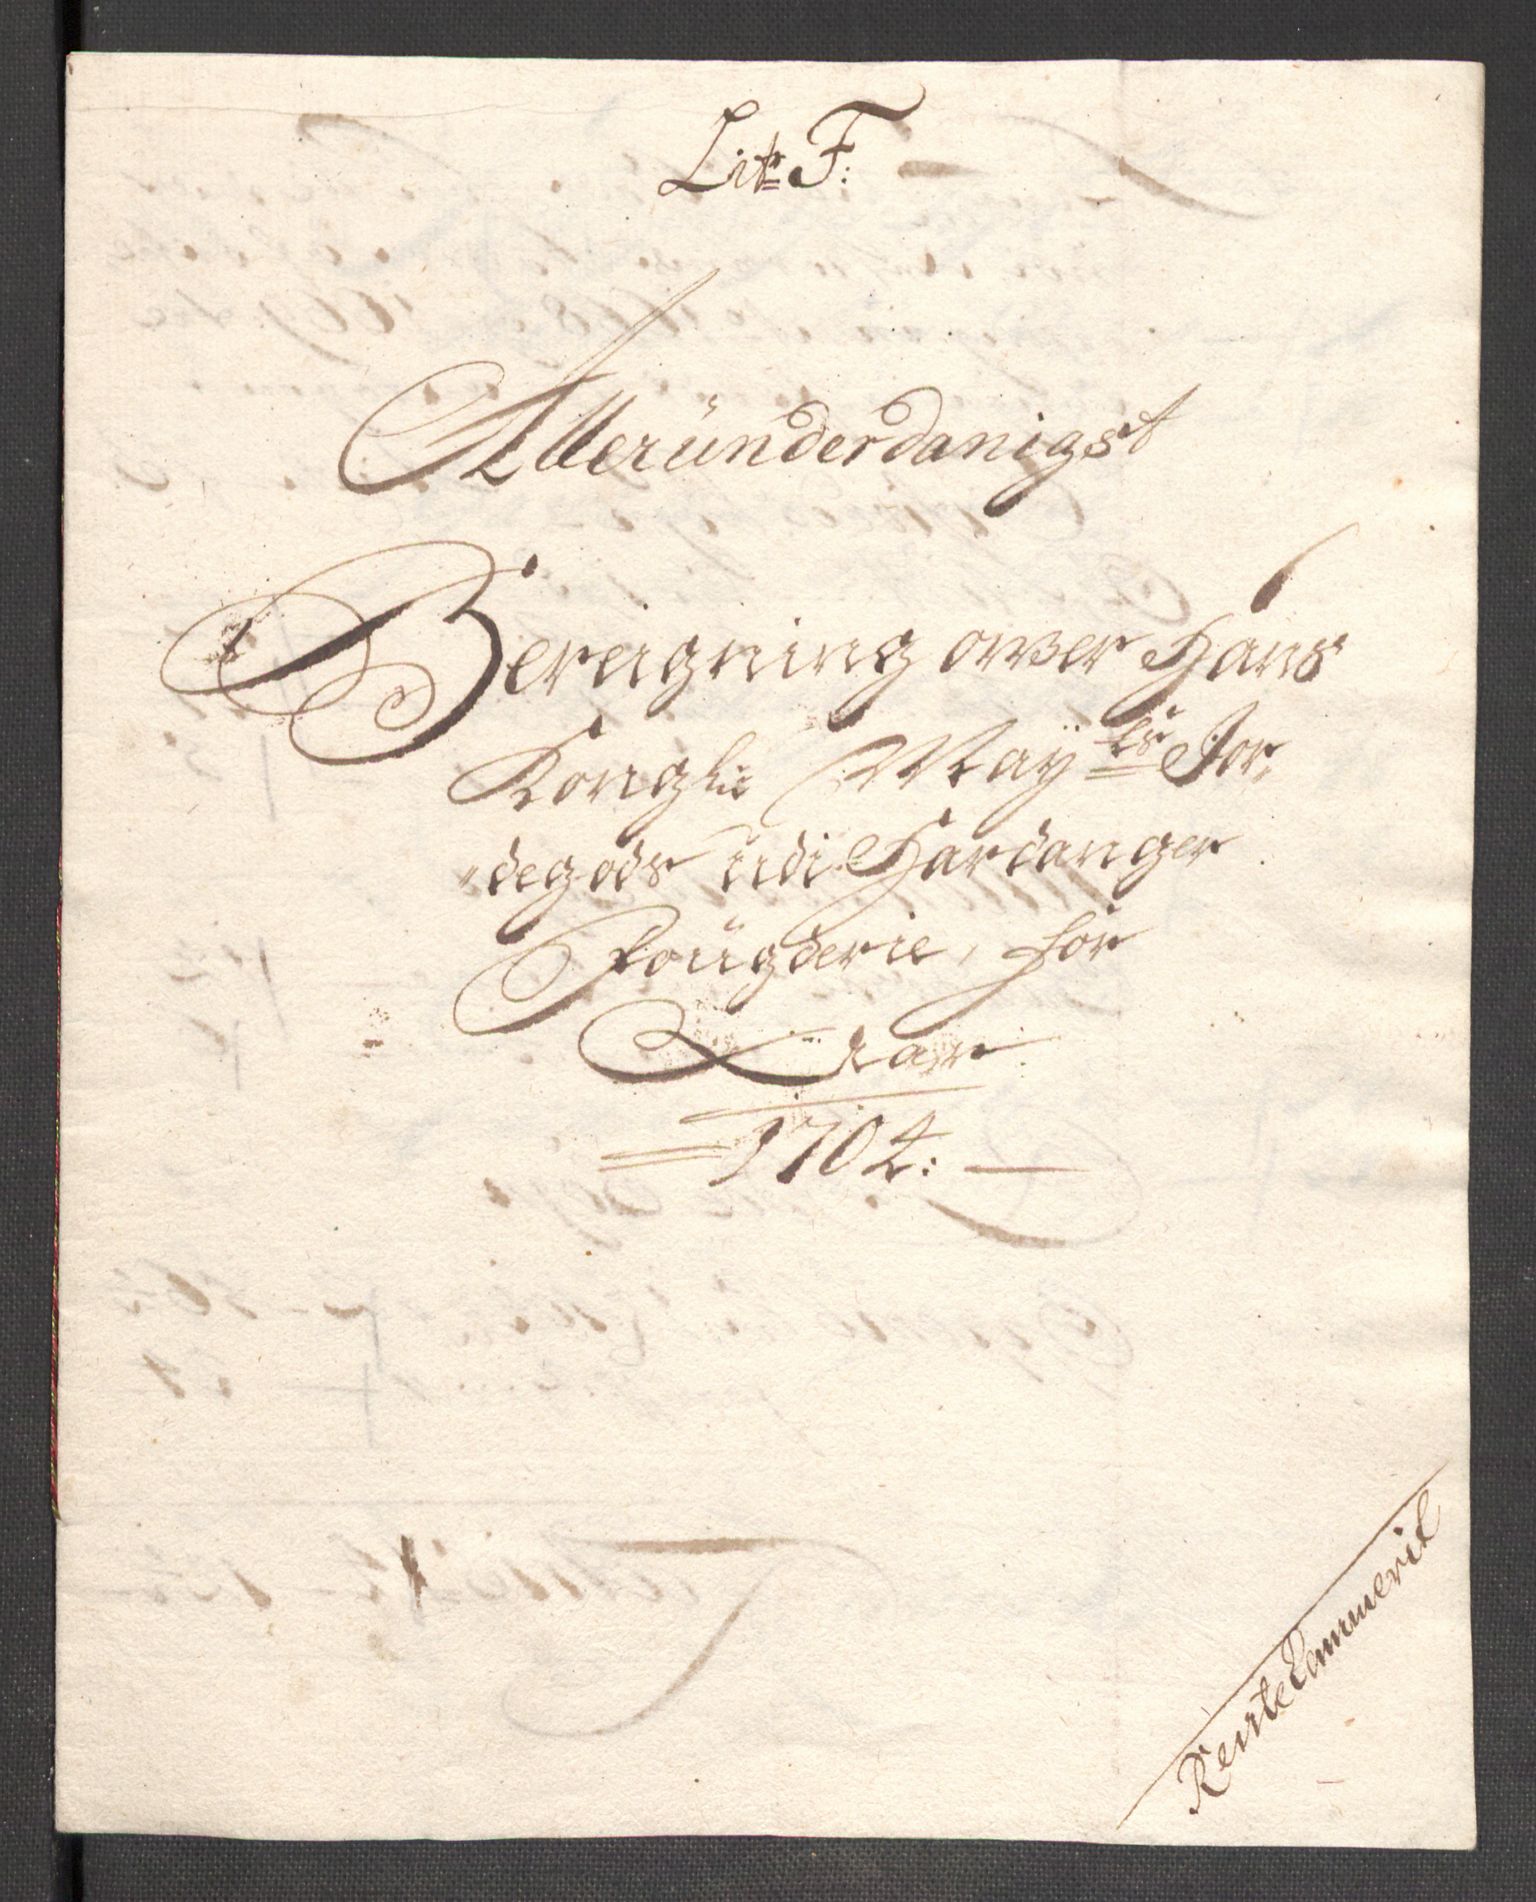 Litr F:
Alleründerdanigst
Beregning offver Hans
Konglie Maÿtz Jor„
„degods udi Hardanger
Fougderie, for
Aar
1704:
Rente Cammerit